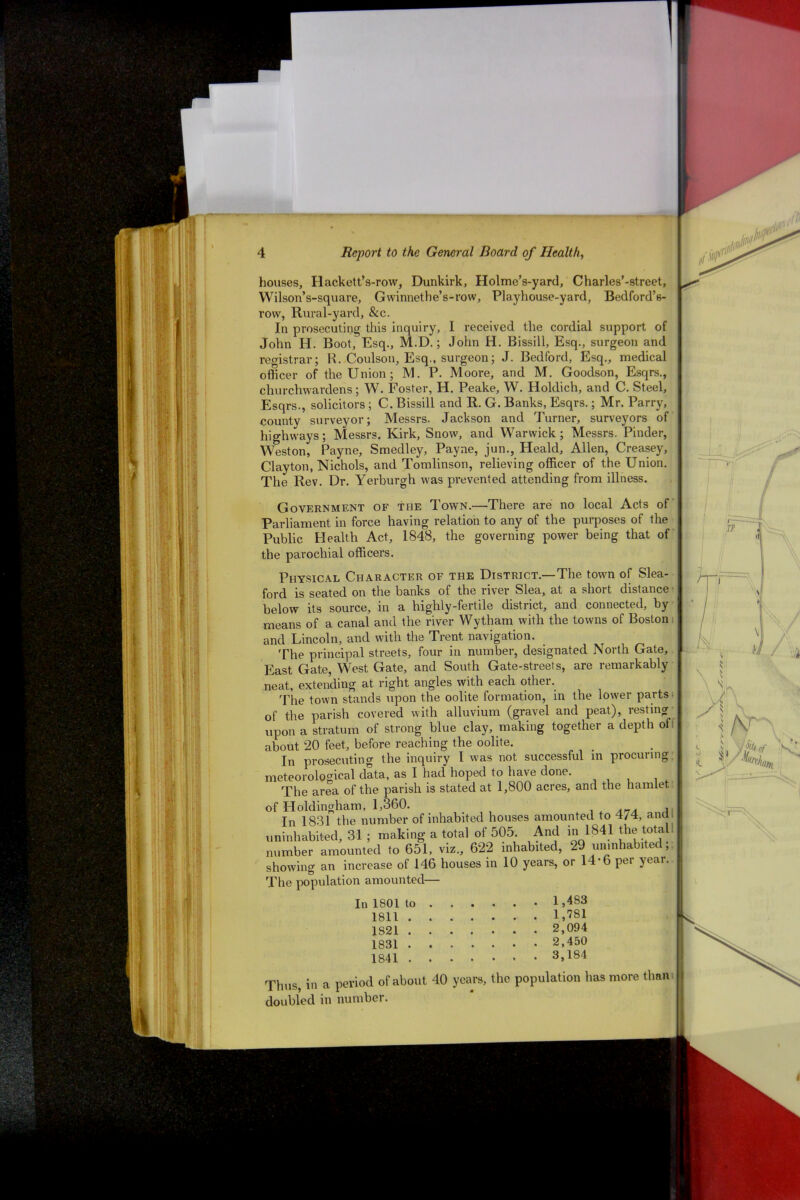 4 Report to the General Board of Health,
houses, Hackett's-row, Dunkirk, Holme's-yard, Charles'-street,
Wilson's-square, Gwinnethe's-row, Playhouse-yard, Bedford's-
row, Rural-yard, &c.
In prosecuting this inquiry, I received the cordial support of
John H. Boot, Esq., M.D.; John H. Bissill, Esq., surgeon and
registrar; R. Coulson, Esq., surgeon; J. Bedford, Esq., medical
officer of the Union; M. P. Moore, and M. Goodson, Esqrs.,
churchwardens; W. Foster, H. Peake, W. Holdich, and C. Steel,
Esqrs., solicitors; C. Bissill and R. G. Banks, Esqrs.; Mr. Parry,
county surveyor; Messrs. Jackson and Turner, surveyors of
highways; Messrs. Kirk, Snow, and Warwick; Messrs. Pinder,
Weston, Payne, Smedley, Payne, jun., Heald, Allen, Creasey,
Clayton, Nichols, and Tomlinson, relieving officer of the Union.
The Rev. Dr. Yerburgh was prevented attending from illness.
Government of the Town.—There are no local Acts of
Parliament in force having relation to any of the purposes of the
Public Health Act, 1848, the governing power being that of
the parochial officers.
Physical Character of the District.—The town of Slea-
ford is seated on the banks of the river Slea, at a short distance
below its source, in a highly-fertile district, and connected, by
means of a canal and the river Wytham with the towns of Boston
and Lincoln, and with the Trent navigation.
The principal streets, four in number, designated North Gate,
East Gate, West Gate, and South Gate-streets, are remarkably
neat, extending at right angles with each other.
The town stands upon the oolite formation, in the lower parts
of the parish covered with alluvium (gravel and peat), resting
upon a stratum of strong blue clay, making together a depth of
about 20 feet, before reaching the oolite.
In prosecuting the inquiry I was not successful in procuring
meteorological data, as I had hoped to have done.
The area of the parish is stated at 1,800 acres, and the hamlet
of Holdingham, 1,360.
In 1831 the number of inhabited houses amounted to 474, and
uninhabited, 31; making a total of 505. And in 1841 the total
number amounted to 651, viz., 622 inhabited, 29 uninhabited;
showing an increase of 146 houses in 10 years, or 14·6 per year.
The population amounted—
In 1801 to . . . . . . 1,483
1811 . . . . . . . 1,781
1821 . . . . . . . 2,094
1831 . . . . . . . 2,450
1841 . . . . . . . 3,184
Thus, in a period of about 40 years, the population has more than
doubled in number.
of Superintending Inspectors of
T.P.
Site of
Marcham